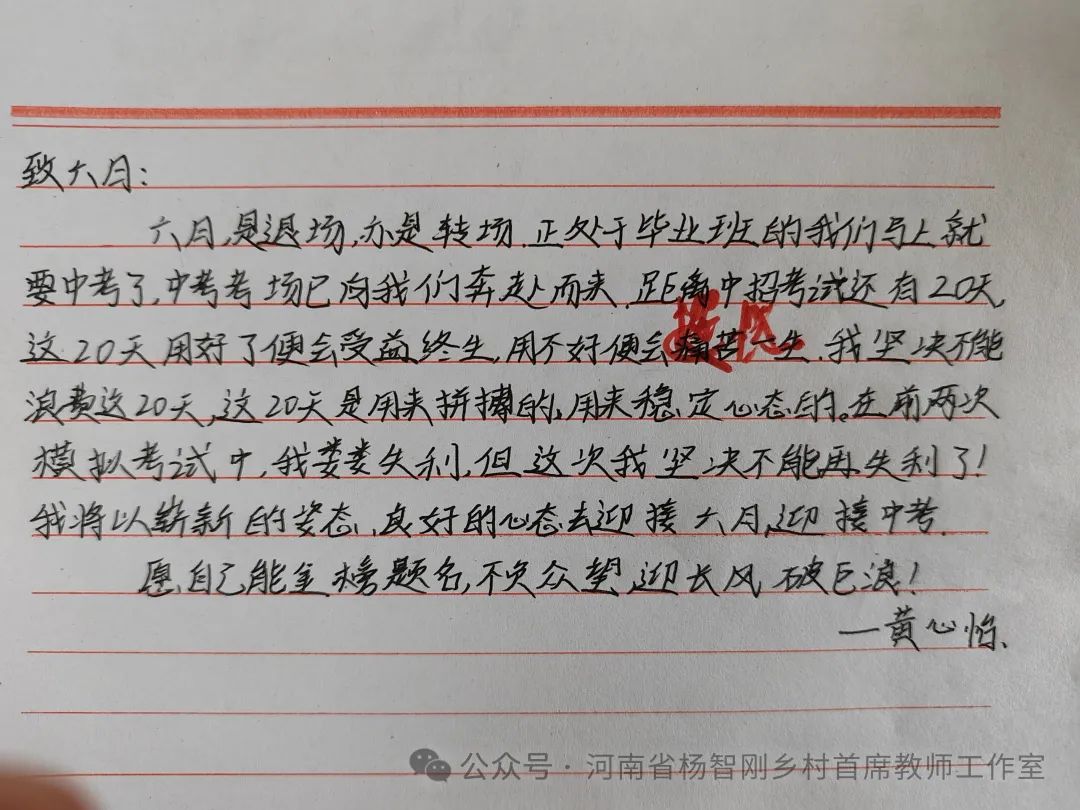 致六月：
六月,是退场,亦是转场.正处于毕业班的我们马上就
要中考了,中考考场已向我们奔赴而来.距离中招考试还有20天,
遗憾
这20天用好了便会受益终生,用不好便会痛苦一生.我坚决不能
浪费这20天,这20天是用来拼搏的,用来稳定心态的。在前两次
模拟考试中,我娄娄失利,但这次我坚决不能再失利了!
我将以崭新的姿态、良好的心态去迎接六月,迎接中考.
愿自己能金榜题名,不负众望,迎长风破巨浪!
—黄心怡、
公众号·河南省杨智刚乡村首席教师工作室